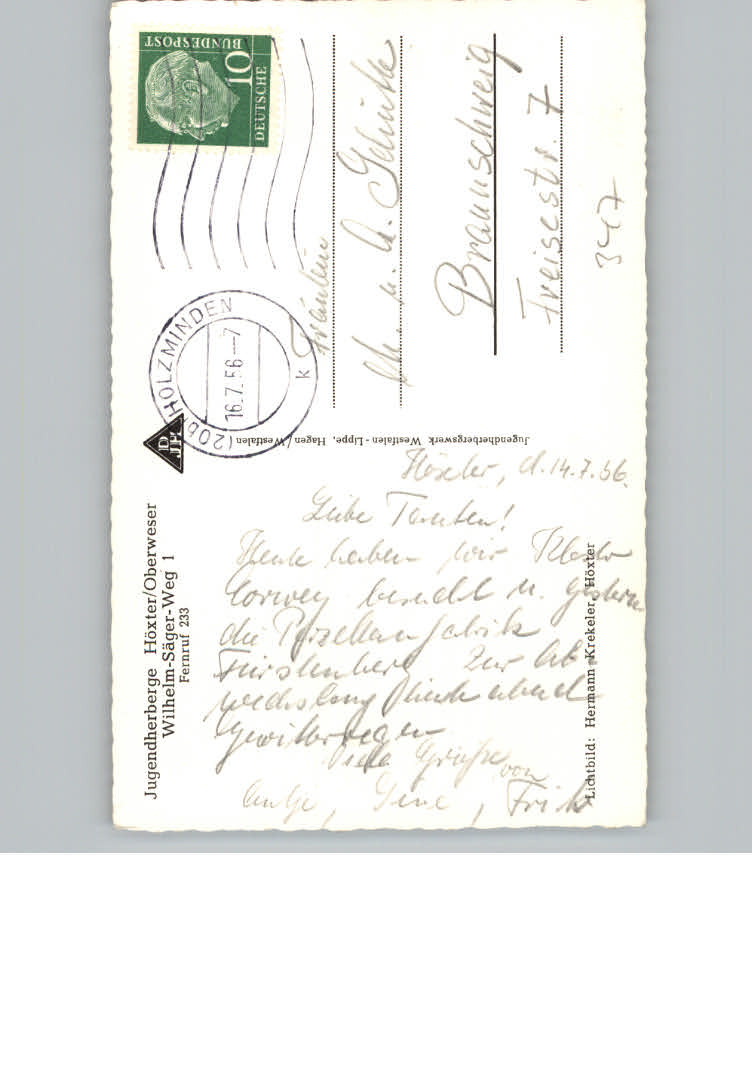 Jugendherberge Höxter/Oberweser
Wilhelm-Säger-Weg 1
Fernruf 233
DJH
Jugendherbergswerk Westfalen-Lippe, Hagen/Westfalen
Lichtbild: Hermann Krekeler, Höxter
DEUTSCHE
BUNDESPOST
10
(20b) HOLZMINDEN
16.7.56-7
k
Höxter, d. 14.7.56.
Liebe Tanten!
Heute haben wir Kloster
Corvey besucht u. gestern
die Porzellanfabrik
Fürstenberg. Zur Ab-
wechslung heute abend
Gewitterregen
Viele Grüße von
Antje, Fritz
Fräulein
M. u. A. Schütte
Braunschweig
Freisestr. 7
347